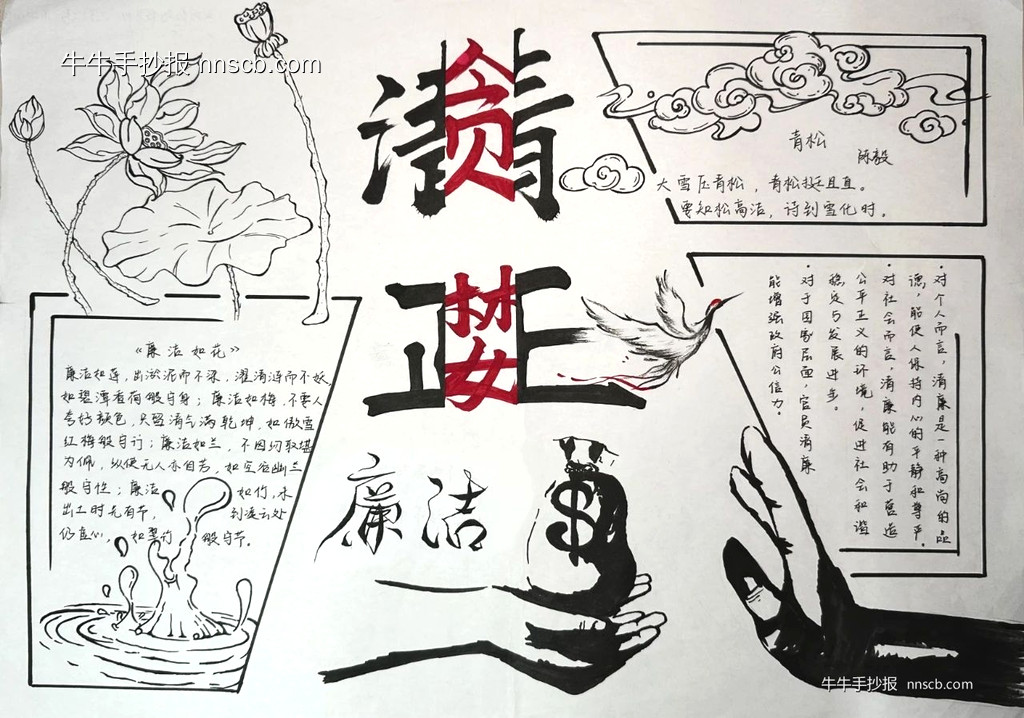 牛牛手抄报 nnscb.com
清
贪
正
婪
廉洁
$
青松
陈毅
大雪压青松，青松挺且直。
要知松高洁，待到雪化时。
《廉洁如花》
廉洁如莲，出淤泥而不染，濯清涟而不妖，
如碧潭看荷般守身；廉洁如梅，不要人
夸好颜色，只留清气满乾坤，如傲雪
红梅般守行；廉洁如兰，不因纫取堪
为佩，纵使无人亦自芳，如空谷幽兰
般守性；廉洁如竹，未
出土时先有节，到凌云处
仍虚心，如翠竹般守节。
·对个人而言，清廉是一种高尚的品
德，能使人保持内心的平静和尊严。
·对社会而言，清廉能有助于营造
公平正义的环境，促进社会和谐
稳定与发展进步。
·对于国家层面，官员清廉
能增强政府公信力。
牛牛手抄报 nnscb.com